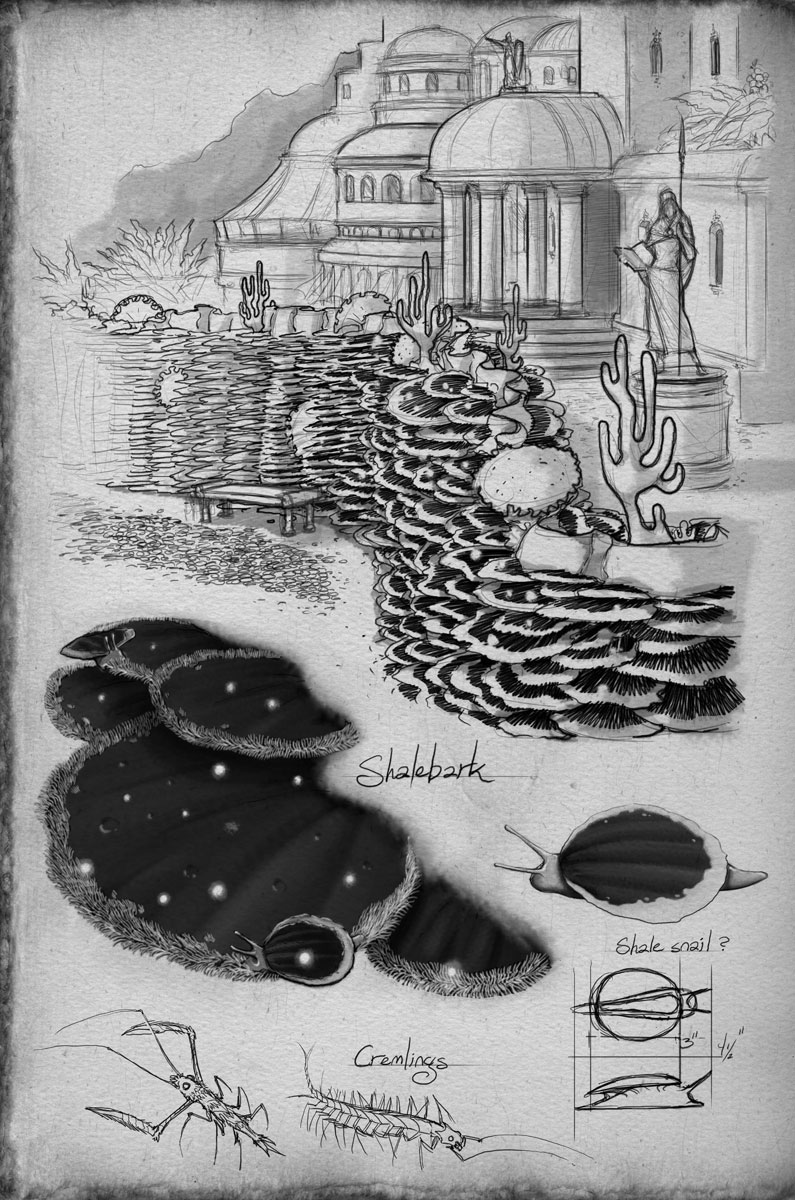 Shalebark
Shale snail?
3"
4½"
Cremlings